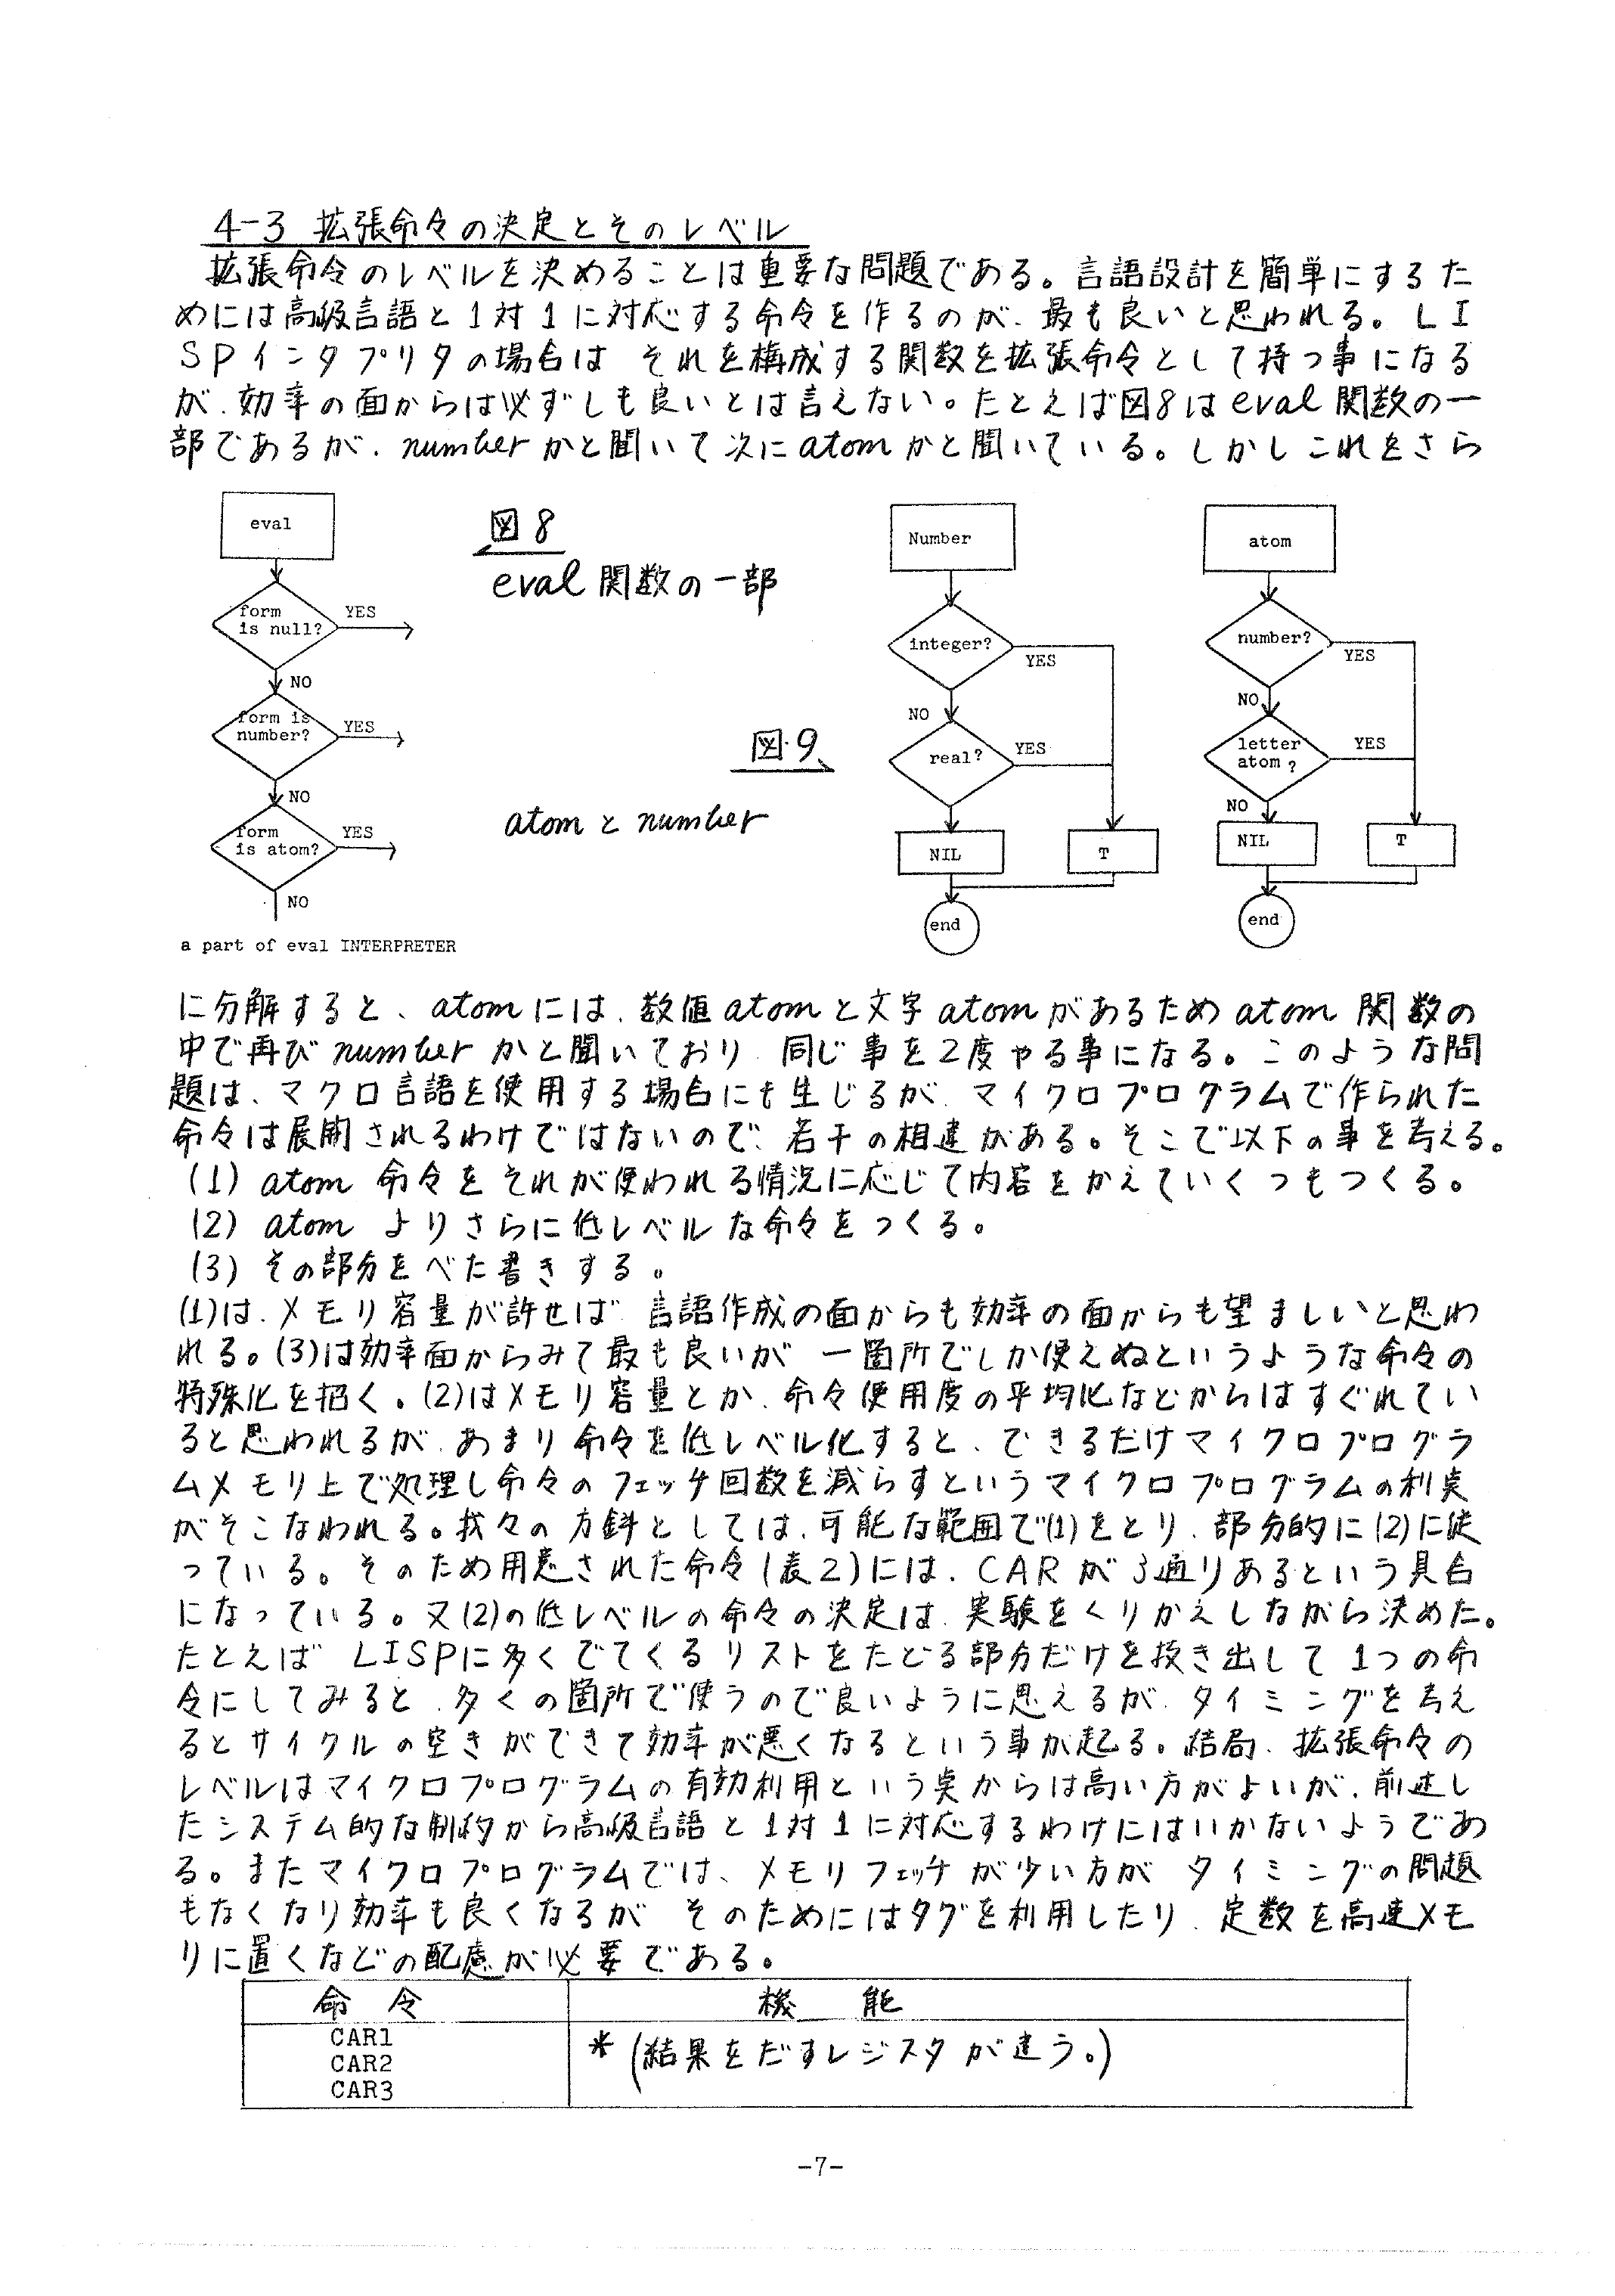 4-3 拡張命令の決定とそのレベル
拡張命令のレベルを決めることは重要な問題である。言語設計を簡単にするた
めには高級言語と1対1に対応する命令を作るのが、最も良いと思われる。LI
SPインタプリタの場合は それを構成する関数を拡張命令として持つ事になる
が、効率の面からは必ずしも良いとは言えない。たとえば図8はeval関数の一
部であるが、numberかと聞いて次にatomかと聞いている。しかしこれをさら
eval
form
is null?
YES
NO
form is
number?
YES
NO
form
is atom?
YES
NO
a part of eval INTERPRETER
図8
eval関数の一部
図9
atomとnumber
Number
integer?
YES
NO
real?
YES
NIL
T
end
atom
number?
YES
NO
letter
atom ?
YES
NO
NIL
T
end
に分解すると、atomには、数値atomと文字atomがあるためatom関数の
中で再びnumberかと聞いており、同じ事を2度やる事になる。このような問
題は、マクロ言語を使用する場合にも生じるが、マイクロプログラムで作られた
命令は展開されるわけではないので、若干の相違がある。そこで以下の事を考える。
(1) atom 命令をそれが使われる情況に応じて内容をかえていくつもつくる。
(2) atom よりさらに低レベルな命令をつくる。
(3) その部分をべた書きする。
(1)は、メモリ容量が許せば 言語作成の面からも効率の面からも望ましいと思わ
れる。(3)は効率面からみて最も良いが 一箇所でしか使えぬというような命令の
特殊化を招く。(2)はメモリ容量とか、命令使用度の平均化などからはすぐれてい
ると思われるが、あまり命令を低レベル化すると、できるだけマイクロプログラ
ムメモリ上で処理し命令のフェッチ回数を減らすというマイクロプログラムの利点
がそこなわれる。我々の方針としては、可能な範囲で(1)をとり、部分的に(2)に従
っている。そのため用意された命令(表2)には、CARが3通りあるという具合
になっている。又(2)の低レベルの命令の決定は、実験をくりかえしながら決めた。
たとえば LISPに多くでてくるリストをたどる部分だけを抜き出して1つの命
令にしてみると、多くの箇所で使うので良いように思えるが、タイミングを考え
るとサイクルの空きができて効率が悪くなるという事が起る。結局、拡張命令の
レベルはマイクロプログラムの有効利用という点からは高い方がよいが、前述し
たシステム的な制約から高級言語と1対1に対応するわけにはいかないようであ
る。またマイクロプログラムでは、メモリフェッチが少い方が タイミングの問題
もなくなり効率も良くなるが そのためにはタグを利用したり、定数を高速メモ
リに置くなどの配慮が必要である。
命 令
機 能
CAR1
CAR2
CAR3
* (結果をだすレジスタが違う。)
-7-